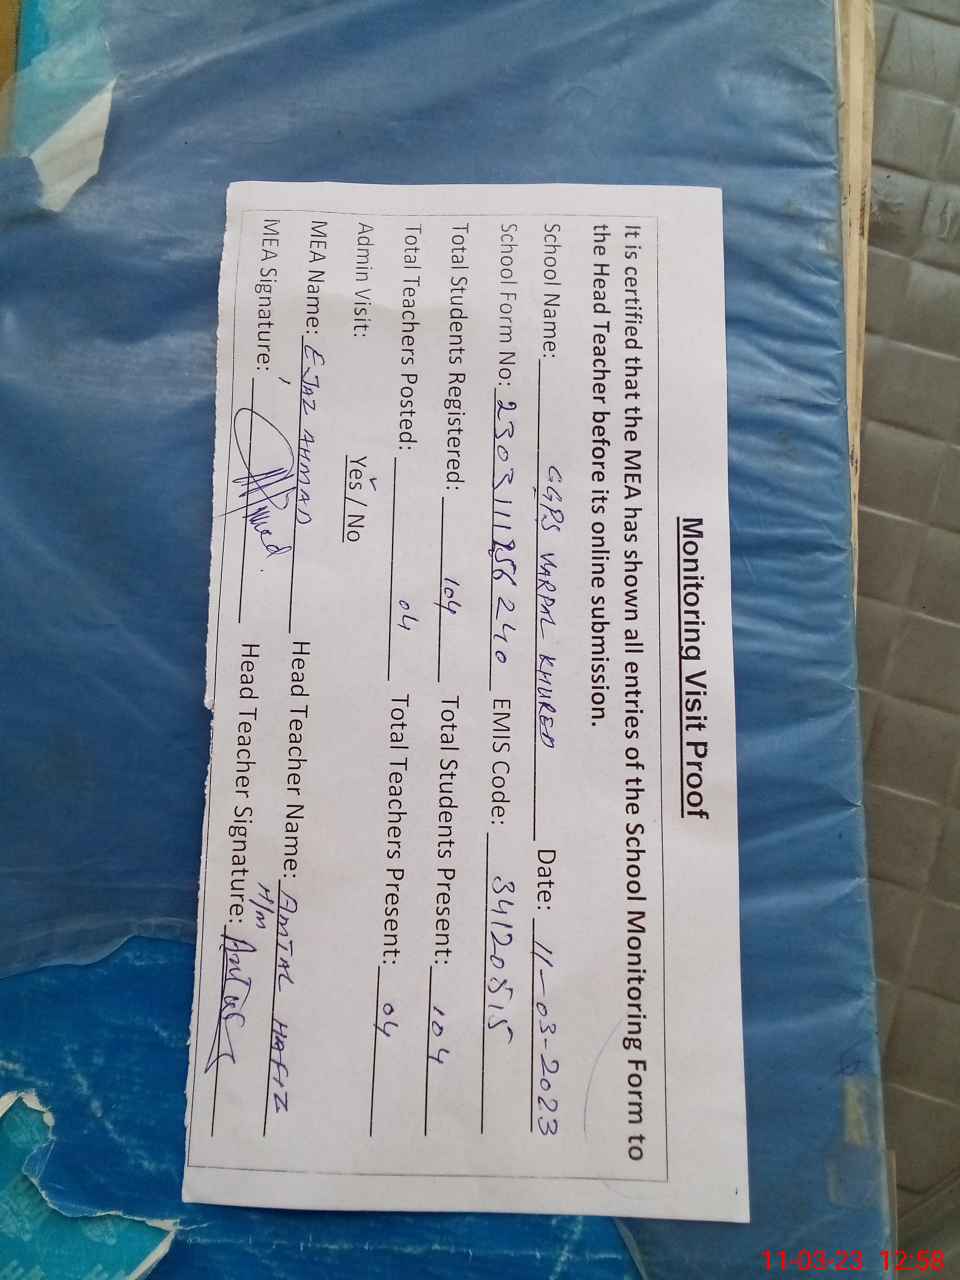 Monitoring Visit Proof
It is certified that the MEA has shown all entries of the School Monitoring Form to
the Head Teacher before its online submission.
School Name: GGPS VARPAL KHURED Date: 11-03-2023
School Form No: 2303111856240 EMIS Code: 34120515
Total Students Registered: 104 Total Students Present: 104
Total Teachers Posted: 04 Total Teachers Present: 04
Admin Visit: Yes / No
MEA Name: EJAZ AHMAD Head Teacher Name: AMTAL HAFIZ
H/M
MEA Signature: Head Teacher Signature:
11-03-23 12:58